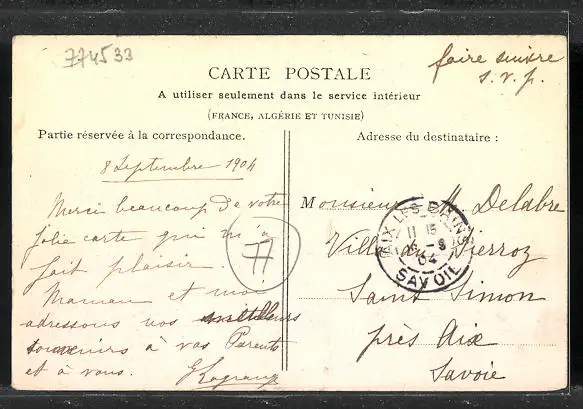 774533
faire suivre
s. v. p.
CARTE POSTALE
A utiliser seulement dans le service intérieur
(FRANCE, ALGÉRIE ET TUNISIE)
Partie réservée à la correspondance.
Adresse du destinataire :
8 Septembre 1904
Merci beaucoup de votre
jolie carte qui m'a
fait plaisir.
Maman et moi
adressons nos meilleurs
souvenirs à vos Parents
et à vous.
77
Monsieur H. Delabre
Villa Pierroz
Saint Simon
près Aix
Savoie
AIX LES BAINS
11 15
04
SAVOIE